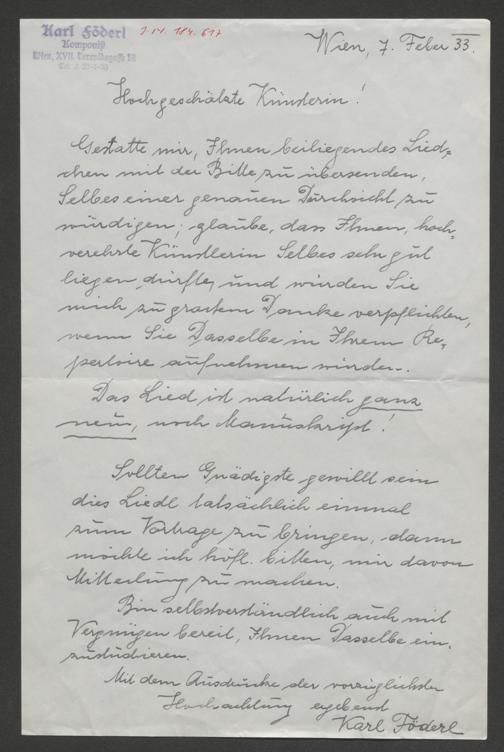 Karl Föderl
Komponist
Wien, XVII.
J.N. 184.617
Wien, 7. Feber 33.
Hochgeschätzte Künstlerin!
Gestatte mir, Ihnen beiliegendes Lied-
chen mit der Bitte zu übersenden,
Selbes einer genauen Durchsicht zu
würdigen; glaube, dass Ihnen, hoch-
verehrte Künstlerin Selbes sehr gut
liegen dürfte, und würden Sie
mich zu grossem Danke verpflichten,
wenn Sie Dasselbe in Ihrem Re-
pertoire aufnehmen würden.
Das Lied ist natürlich ganz
neu, noch Manuskript!
Sollten Gnädigste gewillt sein
dies Liedl tatsächlich einmal
zum Vortrage zu bringen, dann
möchte ich höfl. bitten, mir davon
Mitteilung zu machen.
Bin selbstverständlich auch mit
Vergnügen bereit, Ihnen Dasselbe ein-
zustudieren.
Mit dem Ausdrucke der vorzüglichsten
Hochachtung ergebenst
Karl Föderl